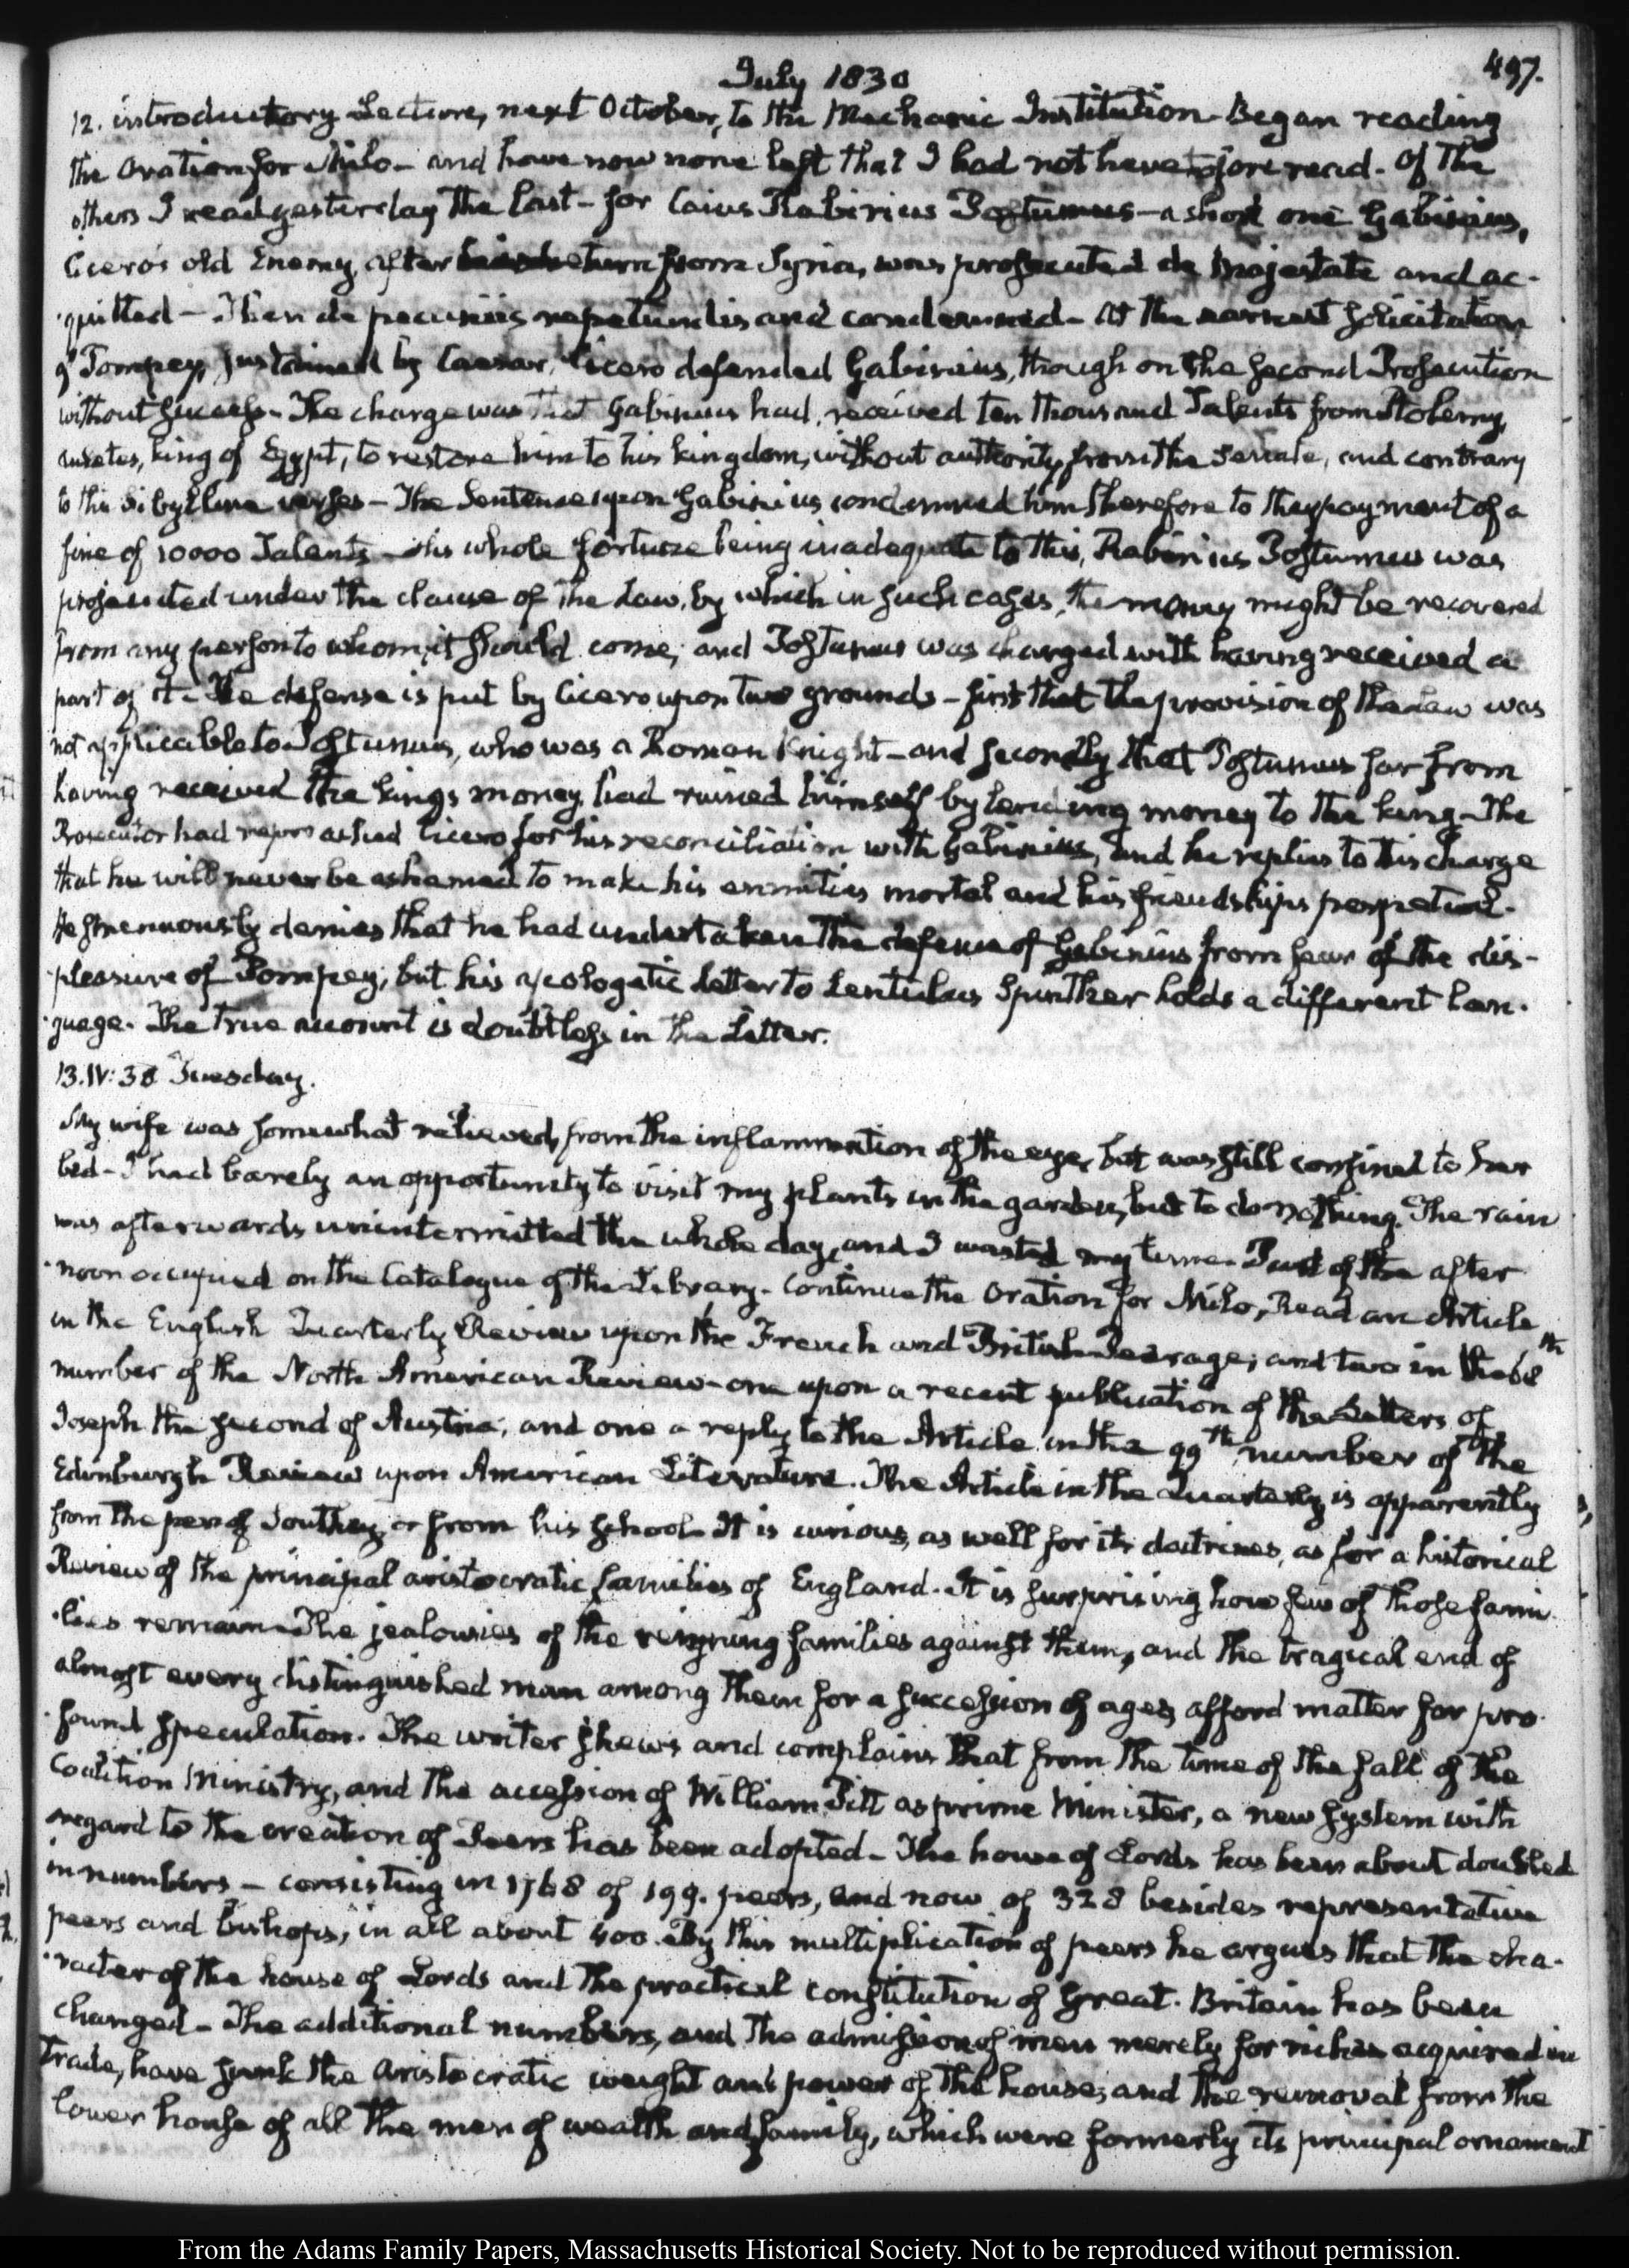 July 1830
497.
12. introductory Lecture, next October, to the Mechanic Institution. Began reading
the Oration for Milo - and have now none left that I had not heretofore read. Of the
others I read yesterday the last - for Caius Rabirius Postumus - a short one Gabinius,
Cicero's old Enemy, after his return from Syria, was prosecuted de Majestate and ac-
quitted - Then de pecuniis repetundis and condemned - At the earnest solicitation
of Pompey, sustained by Caesar, Cicero defended Gabinius, though on the second Prosecution
without success - The charge was that Gabinius had received ten thousand Talents from Ptolemy
Auletes, king of Egypt, to restore him to his kingdom, without authority from the Senate, and contrary
to the Sibylline verses - The Sentence upon Gabinius condemned him therefore to the payment of a
fine of 10000 Talents - His whole fortune being inadequate to this, Rabirius Postumus was
prosecuted under the clause of the Law, by which in such cases, the money might be recovered
from any person to whom it should come; and Postumus was charged with having received a
part of it - The defense is put by Cicero upon two grounds - first that the provision of the Law was
not applicable to Postumus, who was a Roman Knight - and secondly that Postumus far from
having received the kings money, had ruined himself by lending money to the king - The
Prosecutor had reproached Cicero for his reconciliation with Gabinius, and he replies to this charge
that he will never be ashamed to make his enmities mortal and his friendships perpetual.
He strenuously denies that he had undertaken the defense of Gabinius from fear of the dis-
pleasure of Pompey; but his apologetic Letter to Lentulus Spinther holds a different lan-
guage. The true account is doubtless in the Letter.
13. IV:30 Tuesday.
My wife was somewhat relieved from the inflammation of the eye, but was still confined to her
bed - I had barely an opportunity to visit my plants in the garden, but to do nothing. The rain
was afterwards unintermitted the whole day, and I wasted my time. Part of the after
noon occupied on the Catalogue of the Library. Continue the Oration for Milo, Read an Article
in the English Quarterly Review upon the French and British Peerage; and two in the 68th
number of the North American Review - one upon a recent publication of the Letters of
Joseph the second of Austria; and one a reply to the Article in the 99th number of the
Edinburgh Review upon American Literature. The Article in the Quarterly is apparently
from the pen of Southey or from his school. It is curious, as well for its doctrines, as for a historical
Review of the principal aristocratic families of England. It is surprising how few of those fami
lies remain - The jealousies of the reigning families against them, and the tragical end of
almost every distinguished man among them for a succession of ages, afford matter for pro
found speculation. The writer shews and complains that from the time of the fall of the
Coalition Ministry, and the accession of William Pitt as prime Minister, a new system with
regard to the creation of Peers has been adopted - The house of Lords has been about doubled
in numbers - consisting in 1768 of 199. peers, and now of 328 besides representative
peers and bishops, in all about 400. By this multiplication of peers he argues that the cha-
racter of the house of Lords and the practical constitution of Great-Britain has been
changed - The additional numbers, and the admission of men merely for riches acquired in
Trade, have sunk the aristocratic weight and power of the house; and the removal from the
lower house of all the men of wealth and family, which were formerly its principal ornament
From the Adams Family Papers, Massachusetts Historical Society. Not to be reproduced without permission.